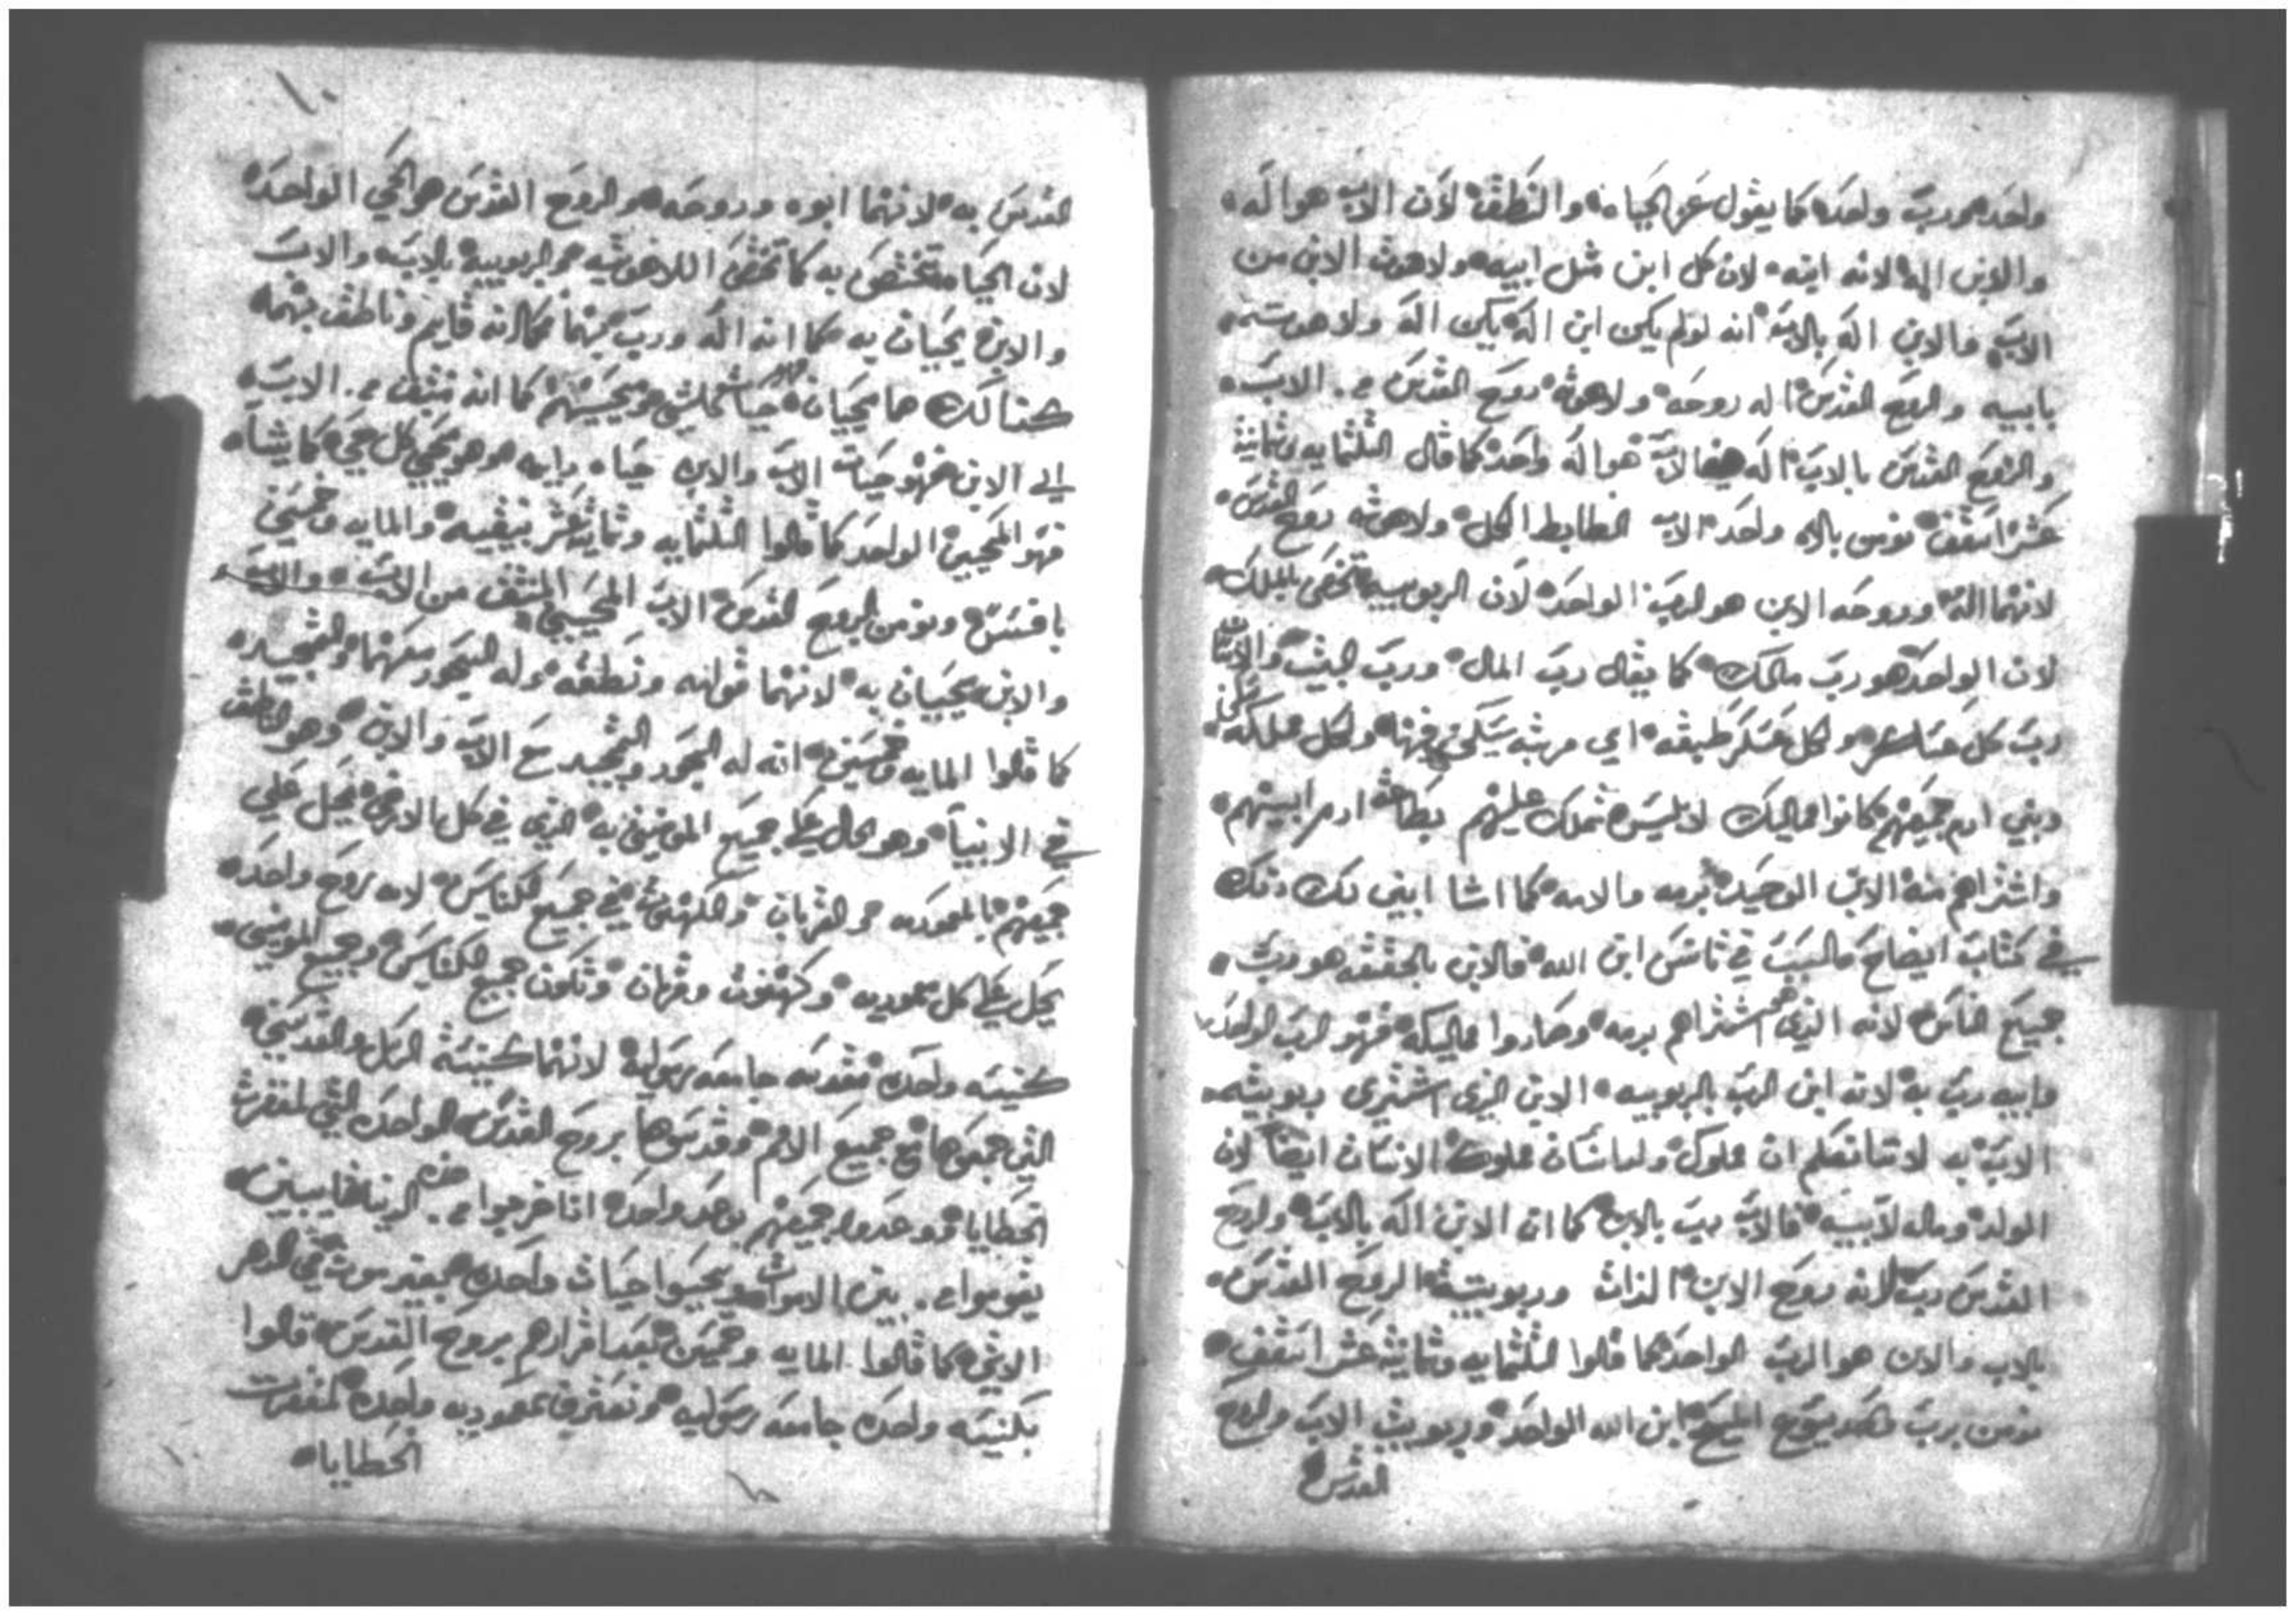 واحد هو رب واحد كما يقول عن الحياه والنطق لان الاب هو اله
والابن اله لانه ابنه لان كل ابن مثل ابيه ولاهوت الابن من
الاب فالابن اله بالاب انه لو لم يكن ابن اله يكن اله ولاهوته
بابيه والروح القدس اله روحه ولاهوته روح القدس الاب
والروح القدس بالاب اله هو اله واحد كما قال الثلثمايه وثمانية
عشر اسقف نومن بالاه واحد الاب الظابط الكل ولاهوته روح القدس
لانهما اله وروحه الابن هو الرب الواحد لان الربوبيه تختص بالملك
لان الواحد هو رب مالك كما يقال رب المال ورب البيت
رب كل عسكر ولكل عسكر طبقه اي مرتبه يسكن فيها ولكل مملكه
وبني ادم جميعهم كانوا مماليك لابليس تملك عليهم بطاعة ادم ابيهم
واشتراهم منه الابن الوحيد بدمه والامه كما اشا ابني لك ذلك
في كتاب ايضاح السبب في تانس ابن الله فالابن بالحقيقه هو رب
جميع الناس لانه الذي اشتراهم بدمه وصاروا مماليكه فهو الرب الواحد
وابيه رب به لانه ابن الرب بالربوبيه الابن الذي اشترى ربوبيته
الاب به لاننا نعلم ان مملوك الانسان ايضا لان
الولد ومال لابيه فالاب رب بالابن كما ان الابن اله بالاب والروح
القدس رب لانه روح الابن الذات وربوبيته الروح القدس
بالاب والابن هو الرب الواحد كما قالوا الثلثمايه وثمانية عشر اسقف
نومن برب واحد يسوع المسيح ابن الله الواحد وربوبيت الاب والروح
القدس
١٠
القدس به لانهما ابوه وروحه والروح القدس هو الحي الواحد
لان الحياه تختص به كما تختص اللاهوتيه والربوبية بالاب والاب
والابن يحيان به كما انه اله ورب بهما كما انه قايم وناطق بهما
كذالك هما يحييان كما انه منبثق الاب
الي الابن فهو حيات الاب والابن حياه وابيه هو هو يحيي كل حي كما يشا
فهو المحيي الواحد كما قالوا الثلثمايه وثمانية عشر بنيقيه والمايه وخمسين
ونومن بالروح القدس الاب المحيي المنبثق من الاب والاب
والابن يحييان به لانهما قوامه ونطقه وله السجود معهما والتمجيد
كما قالوا المايه وخمسين انه له السجود والتمجيد مع الاب والابن وهو الناطق
في الانبيا وهو الحال علي جميع المومنين به الذي في كل الارض يحل علي
جميعهم بالمعموديه والقربان والكهنوت في جميع الكنايس لانه روح واحد
يحل علي كل معموديه وكهنوت وقربان وتكون جميع الكنايس وجميع المومنين
كنيسه واحده مقدسه جامعه رسوليه لانهما كنيسة الرسل والقديسين
التي جمعوها مع جميع الامم وقدسوها بروح القدس الواحد التي لمغفرت
الخطايا ووعدوا جميعهم بوعد واحد اذا خرجوا من الدنيا
يقوموا من بين الاموات ويحيوا حيات واحده بغير موت في الدهر
الاتي كما قالوا المايه وخمسين بعد اقرارهم بروح القدس قالوا
بكنيسه واحده جامعه رسوليه ونعترف بمعموديه واحده لمغفرت
الخطايا